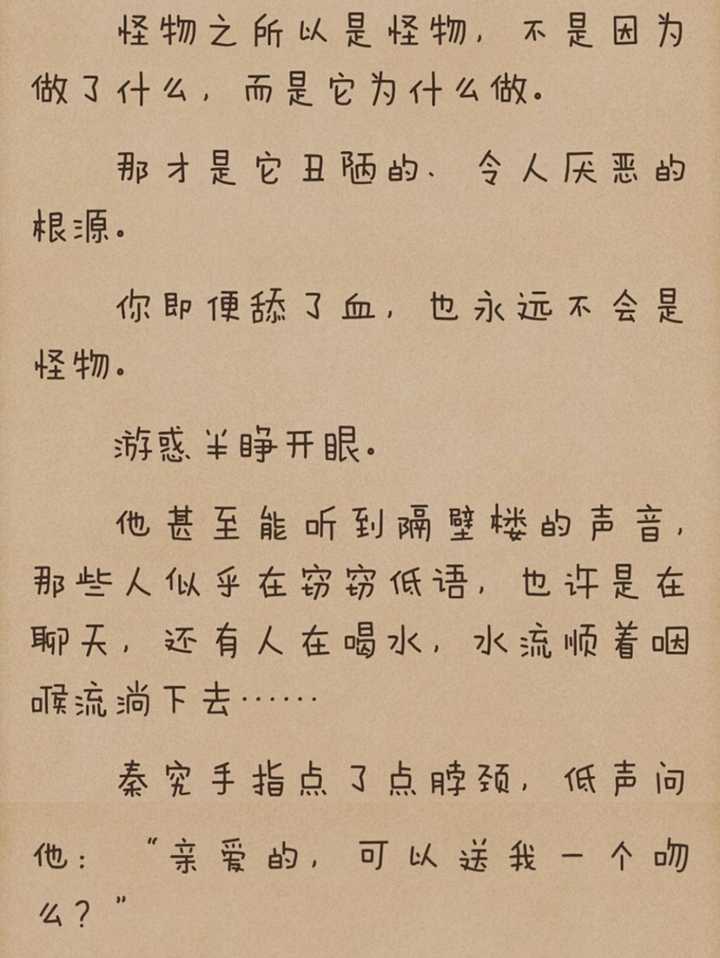 怪物之所以是怪物，不是因为
做了什么，而是它为什么做。
那才是它丑陋的、令人厌恶的
根源。
你即便舔了血，也永远不会是
怪物。
游惑半睁开眼。
他甚至能听到隔壁楼的声音，
那些人似乎在窃窃低语，也许是在
聊天，还有人在喝水，水流顺着咽
喉流淌下去……
秦究手指点了点脖颈，低声问
他：“亲爱的，可以送我一个吻
么？”